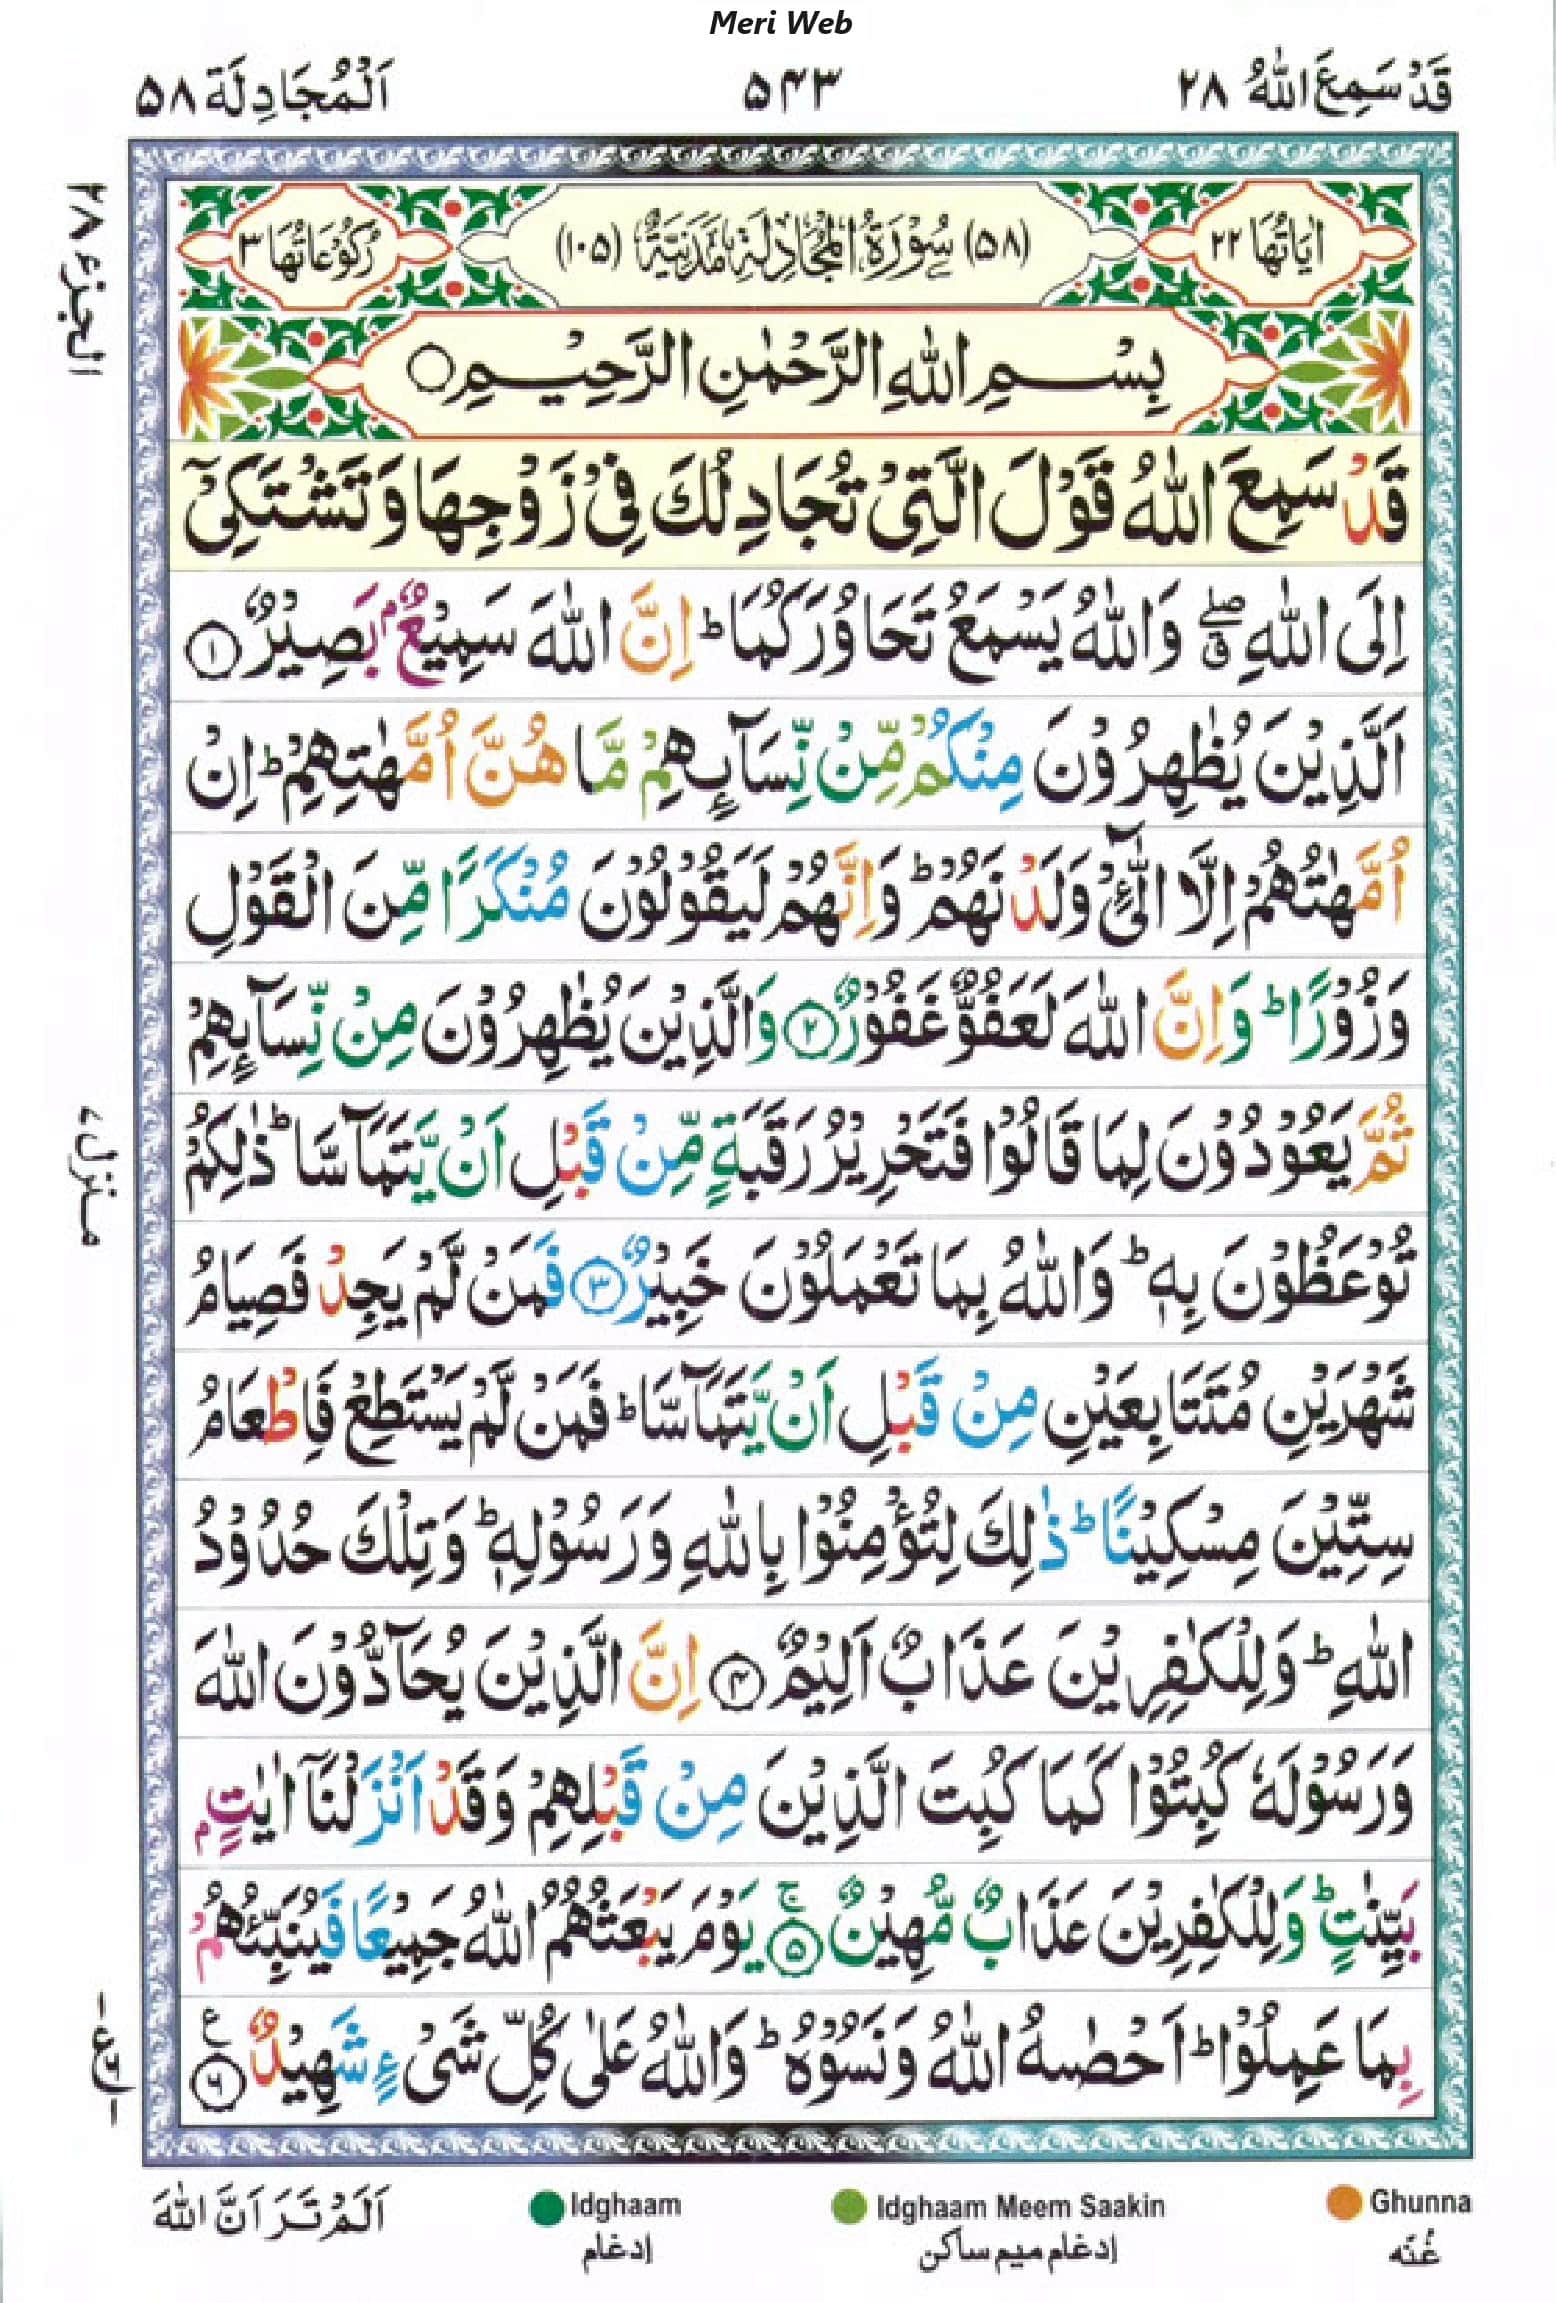 Meri Web
قَدْ سَمِعَ اللّٰهُ ۲۸
۵۴۳
اَلْمُجَادِلَة ۵۸
اٰيَاتُهَا ۲۲
(۵۸) سُوْرَةُ الْمُجَادِلَةِ مَدَنِيَّةٌ (۱۰۵)
رُكُوْعَاتُهَا ۳
بِسْمِ اللّٰهِ الرَّحْمٰنِ الرَّحِيْمِ ○
قَدْ سَمِعَ اللّٰهُ قَوْلَ الَّتِيْ تُجَادِلُكَ فِيْ زَوْجِهَا وَتَشْتَكِيْٓ
اِلَى اللّٰهِ ۖق وَاللّٰهُ يَسْمَعُ تَحَاوُرَكُمَا ؕ اِنَّ اللّٰهَ سَمِيْعٌۢ بَصِيْرٌ ۱
اَلَّذِيْنَ يُظٰهِرُوْنَ مِنْكُمْ مِّنْ نِّسَآىِٕهِمْ مَّا هُنَّ اُمَّهٰتِهِمْ ؕ اِنْ
اُمَّهٰتُهُمْ اِلَّا الّٰٓـِٔيْ وَلَدْنَهُمْ ؕ وَاِنَّهُمْ لَيَقُوْلُوْنَ مُنْكَرًا مِّنَ الْقَوْلِ
وَزُوْرًا ؕ وَاِنَّ اللّٰهَ لَعَفُوٌّ غَفُوْرٌ ۲ وَالَّذِيْنَ يُظٰهِرُوْنَ مِنْ نِّسَآىِٕهِمْ
ثُمَّ يَعُوْدُوْنَ لِمَا قَالُوْا فَتَحْرِيْرُ رَقَبَةٍ مِّنْ قَبْلِ اَنْ يَّتَمَآسَّا ؕ ذٰلِكُمْ
تُوْعَظُوْنَ بِهٖ ؕ وَاللّٰهُ بِمَا تَعْمَلُوْنَ خَبِيْرٌ ۳ فَمَنْ لَّمْ يَجِدْ فَصِيَامُ
شَهْرَيْنِ مُتَتَابِعَيْنِ مِنْ قَبْلِ اَنْ يَّتَمَآسَّا ؕ فَمَنْ لَّمْ يَسْتَطِعْ فَاِطْعَامُ
سِتِّيْنَ مِسْكِيْنًا ؕ ذٰلِكَ لِتُؤْمِنُوْا بِاللّٰهِ وَرَسُوْلِهٖ ؕ وَتِلْكَ حُدُوْدُ
اللّٰهِ ؕ وَلِلْكٰفِرِيْنَ عَذَابٌ اَلِيْمٌ ۴ اِنَّ الَّذِيْنَ يُحَآدُّوْنَ اللّٰهَ
وَرَسُوْلَهٗ كُبِتُوْا كَمَا كُبِتَ الَّذِيْنَ مِنْ قَبْلِهِمْ وَقَدْ اَنْزَلْنَآ اٰيٰتٍۭ
بَيِّنٰتٍ ؕ وَلِلْكٰفِرِيْنَ عَذَابٌ مُّهِيْنٌ ۚ ۵ يَوْمَ يَبْعَثُهُمُ اللّٰهُ جَمِيْعًا فَيُنَبِّئُهُمْ
بِمَا عَمِلُوْا ؕ اَحْصٰىهُ اللّٰهُ وَنَسُوْهُ ؕ وَاللّٰهُ عَلٰى كُلِّ شَيْءٍ شَهِيْدٌ ع ۶
الجزء ۲۸
منزل ۷
Ghunna
غُنّه
Idghaam Meem Saakin
إدغام ميم ساكن
Idghaam
إدغام
اَلَمْ تَرَ اَنَّ اللّٰهَ